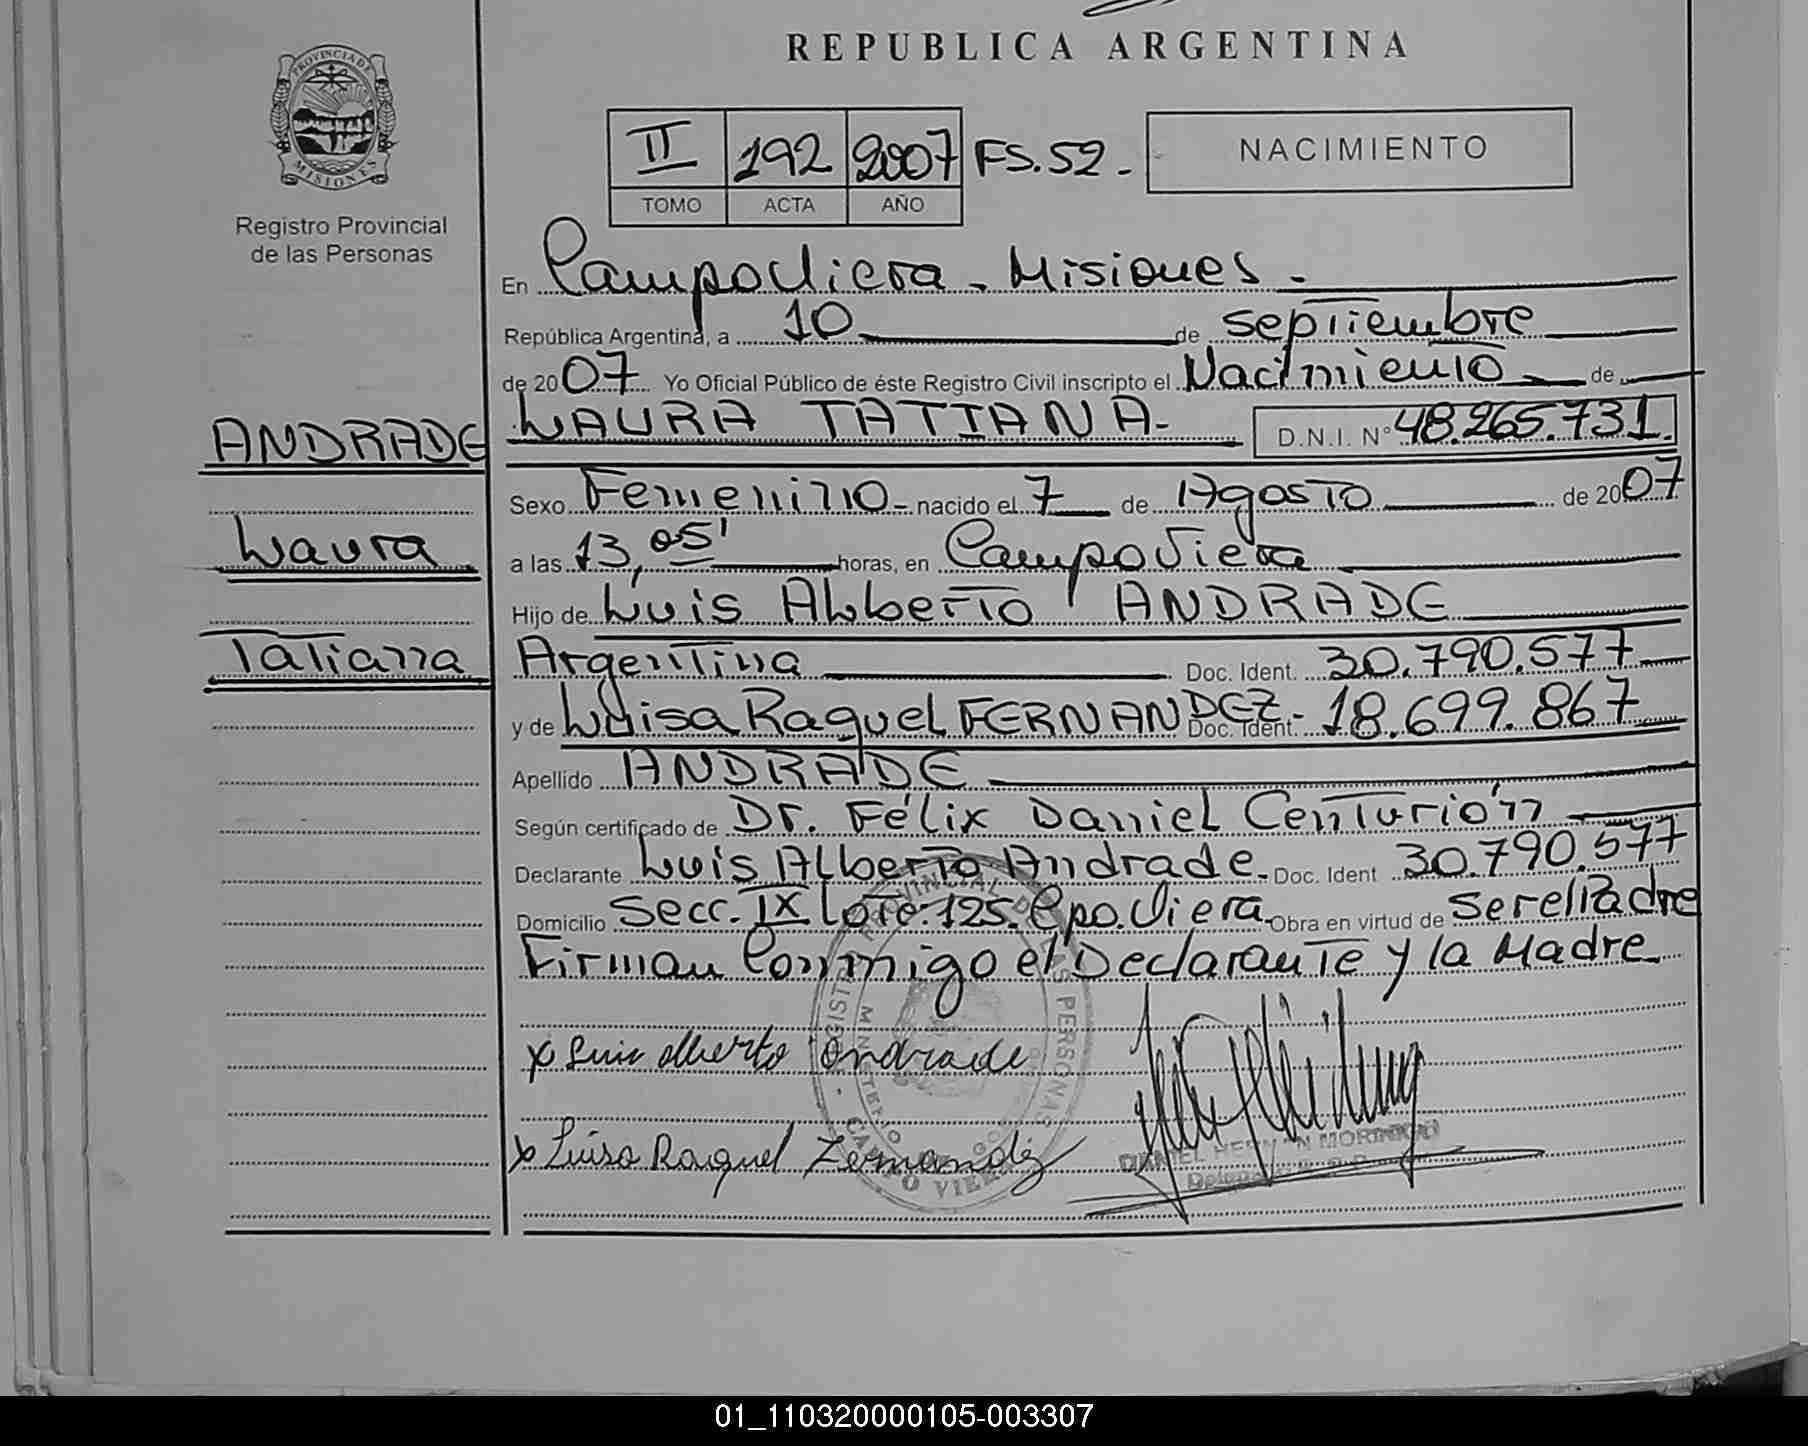 REPUBLICA ARGENTINA
PROVINCIA DE MISIONES
Registro Provincial
de las Personas
II 192 2007 FS. 52.-
TOMO ACTA AÑO
NACIMIENTO
En Campo Viera - Misiones -
República Argentina, a 10 de septiembre
de 2007 Yo Oficial Público de éste Registro Civil inscripto el Nacimiento de
ANDRADE
Laura
Tatiana
LAURA TATIANA - D.N.I. N° 48.265.731.
Sexo Femenino - nacido el 7 de Agosto de 2007
a las 13,05' horas, en Campo Viera
Hijo de Luis Alberto ANDRADE
Argentina Doc. Ident. 30.790.577
y de Luisa Raquel FERNANDEZ - Doc. Ident. 18.699.867
Apellido ANDRADE
Según certificado de Dr. Félix Daniel Centurión
Declarante Luis Alberto Andrade - Doc. Ident 30.790.577
Domicilio Secc. IX Lote 125. Cpo. Viera - Obra en virtud de ser el Padre
Firman Conmigo el Declarante y la Madre
x Luis Alberto Andrade
x Luisa Raquel Fernandez
REGISTRO PROVINCIAL DE LAS PERSONAS
MINISTERIO
CAMPO VIERA
DANIEL HERNAN MORINIGO
01_110320000105-003307